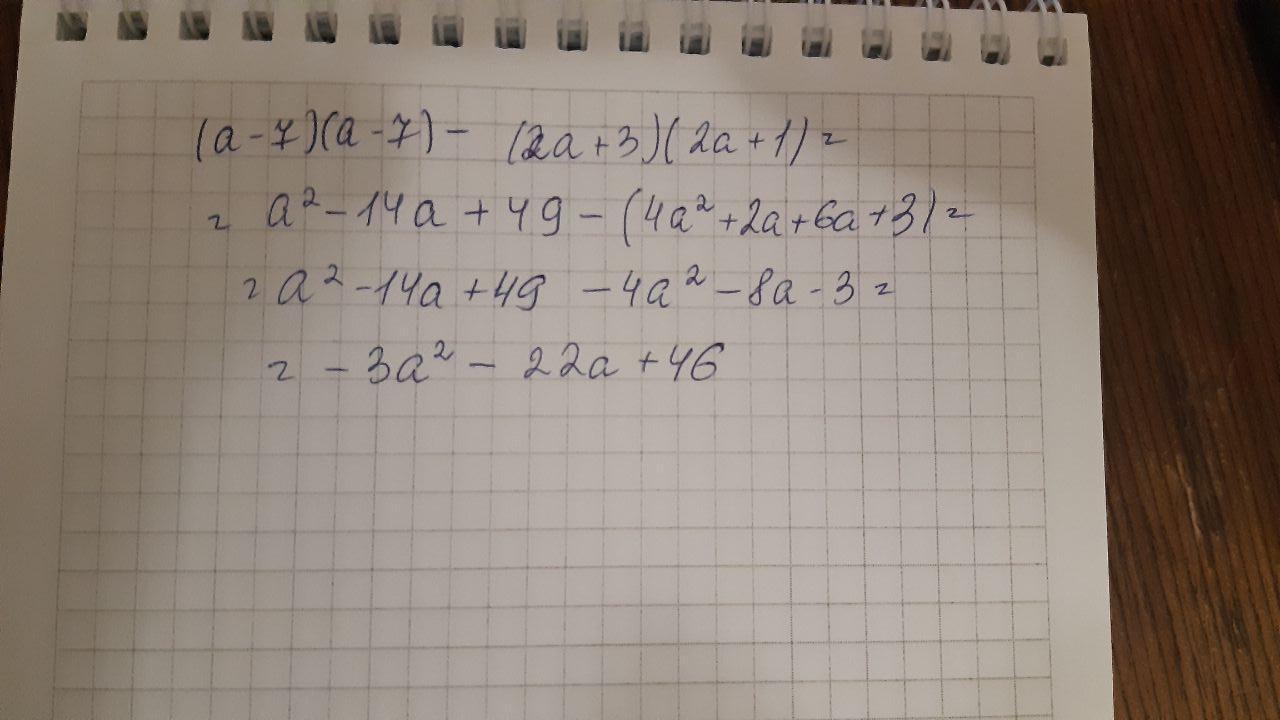 (a-7)(a-7) - (2a+3)(2a+1) =
= a² - 14a + 49 - (4a² + 2a + 6a + 3) =
= a² - 14a + 49 - 4a² - 8a - 3 =
= - 3a² - 22a + 46